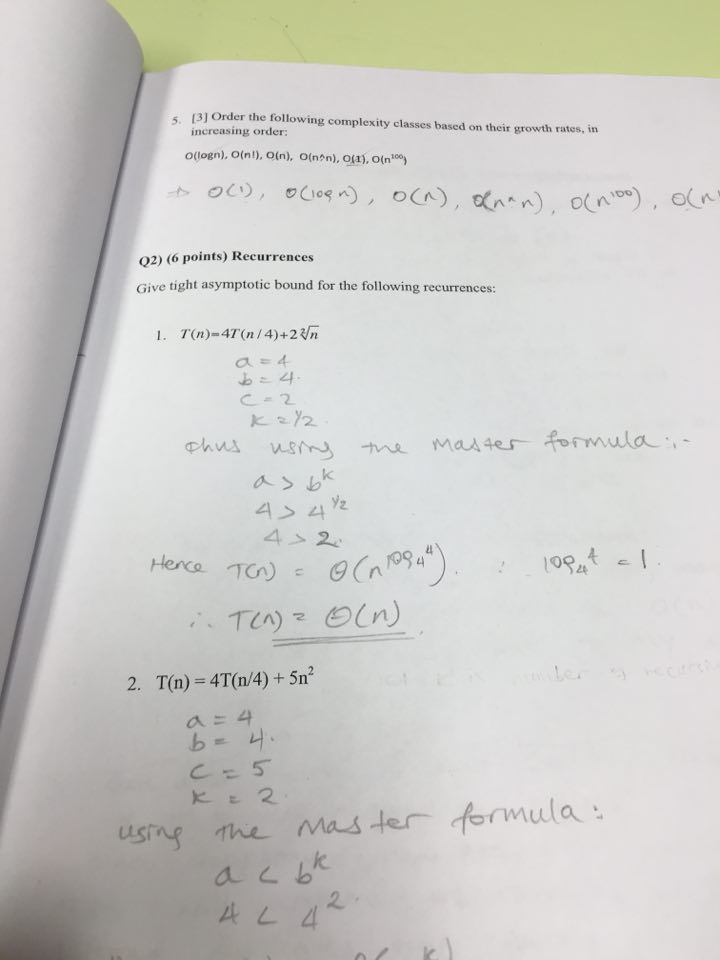 5. [3] Order the following complexity classes based on their growth rates, in
increasing order:
O(logn), O(n!), O(n), O(n^n), O(1), O(n¹⁰⁰)
⇒ O(1), O(log n), O(n), O(n^n), O(n¹⁰⁰), O(n!
Q2) (6 points) Recurrences
Give tight asymptotic bound for the following recurrences:
1. T(n)=4T(n/4)+2²√n
a = 4
b = 4.
c = 2
k = 1/2.
thus using the Master formula:-
a > bᵏ
4 > 4^½
4 > 2.
Hence T(n) = Θ(n^log₄4). ∵ log₄4 = 1.
∴ T(n) = Θ(n).
2. T(n) = 4T(n/4) + 5n²
a = 4
b = 4.
c = 5
k = 2.
using the Master formula:
a < bᵏ
4 < 4².